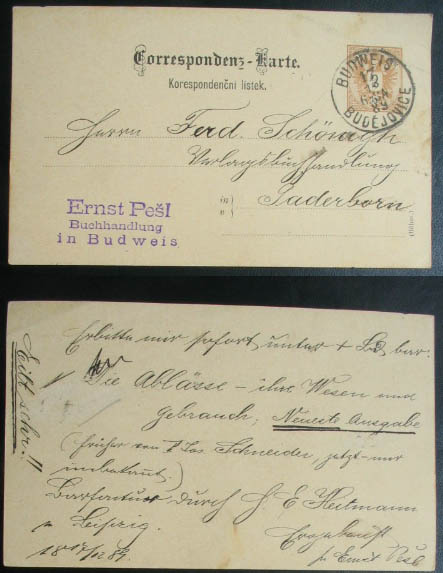 Correspondenz-Karte.
Korespondenční lístek.
BUDWEIS
BUDĚJOVICE
Herrn Ferd. Schöningh
Verlagsbuchhandlung
in
v
Paderborn
(Böhm.)
Ernst Pešl
Buchhandlung
in Budweis
Eilt sehr!!
Erbitte mir sofort unter + bar:
Die Ablässe – ihre Wesen und
Gebrauch, Neueste Ausgabe
(früher von P Jos. Schneider, jetzt mir
unbekannt.)
Barfactur durch H. E Heitmann
in Leipzig.
Ergebenst
18 17/12 89.
p. Ernst Pešl